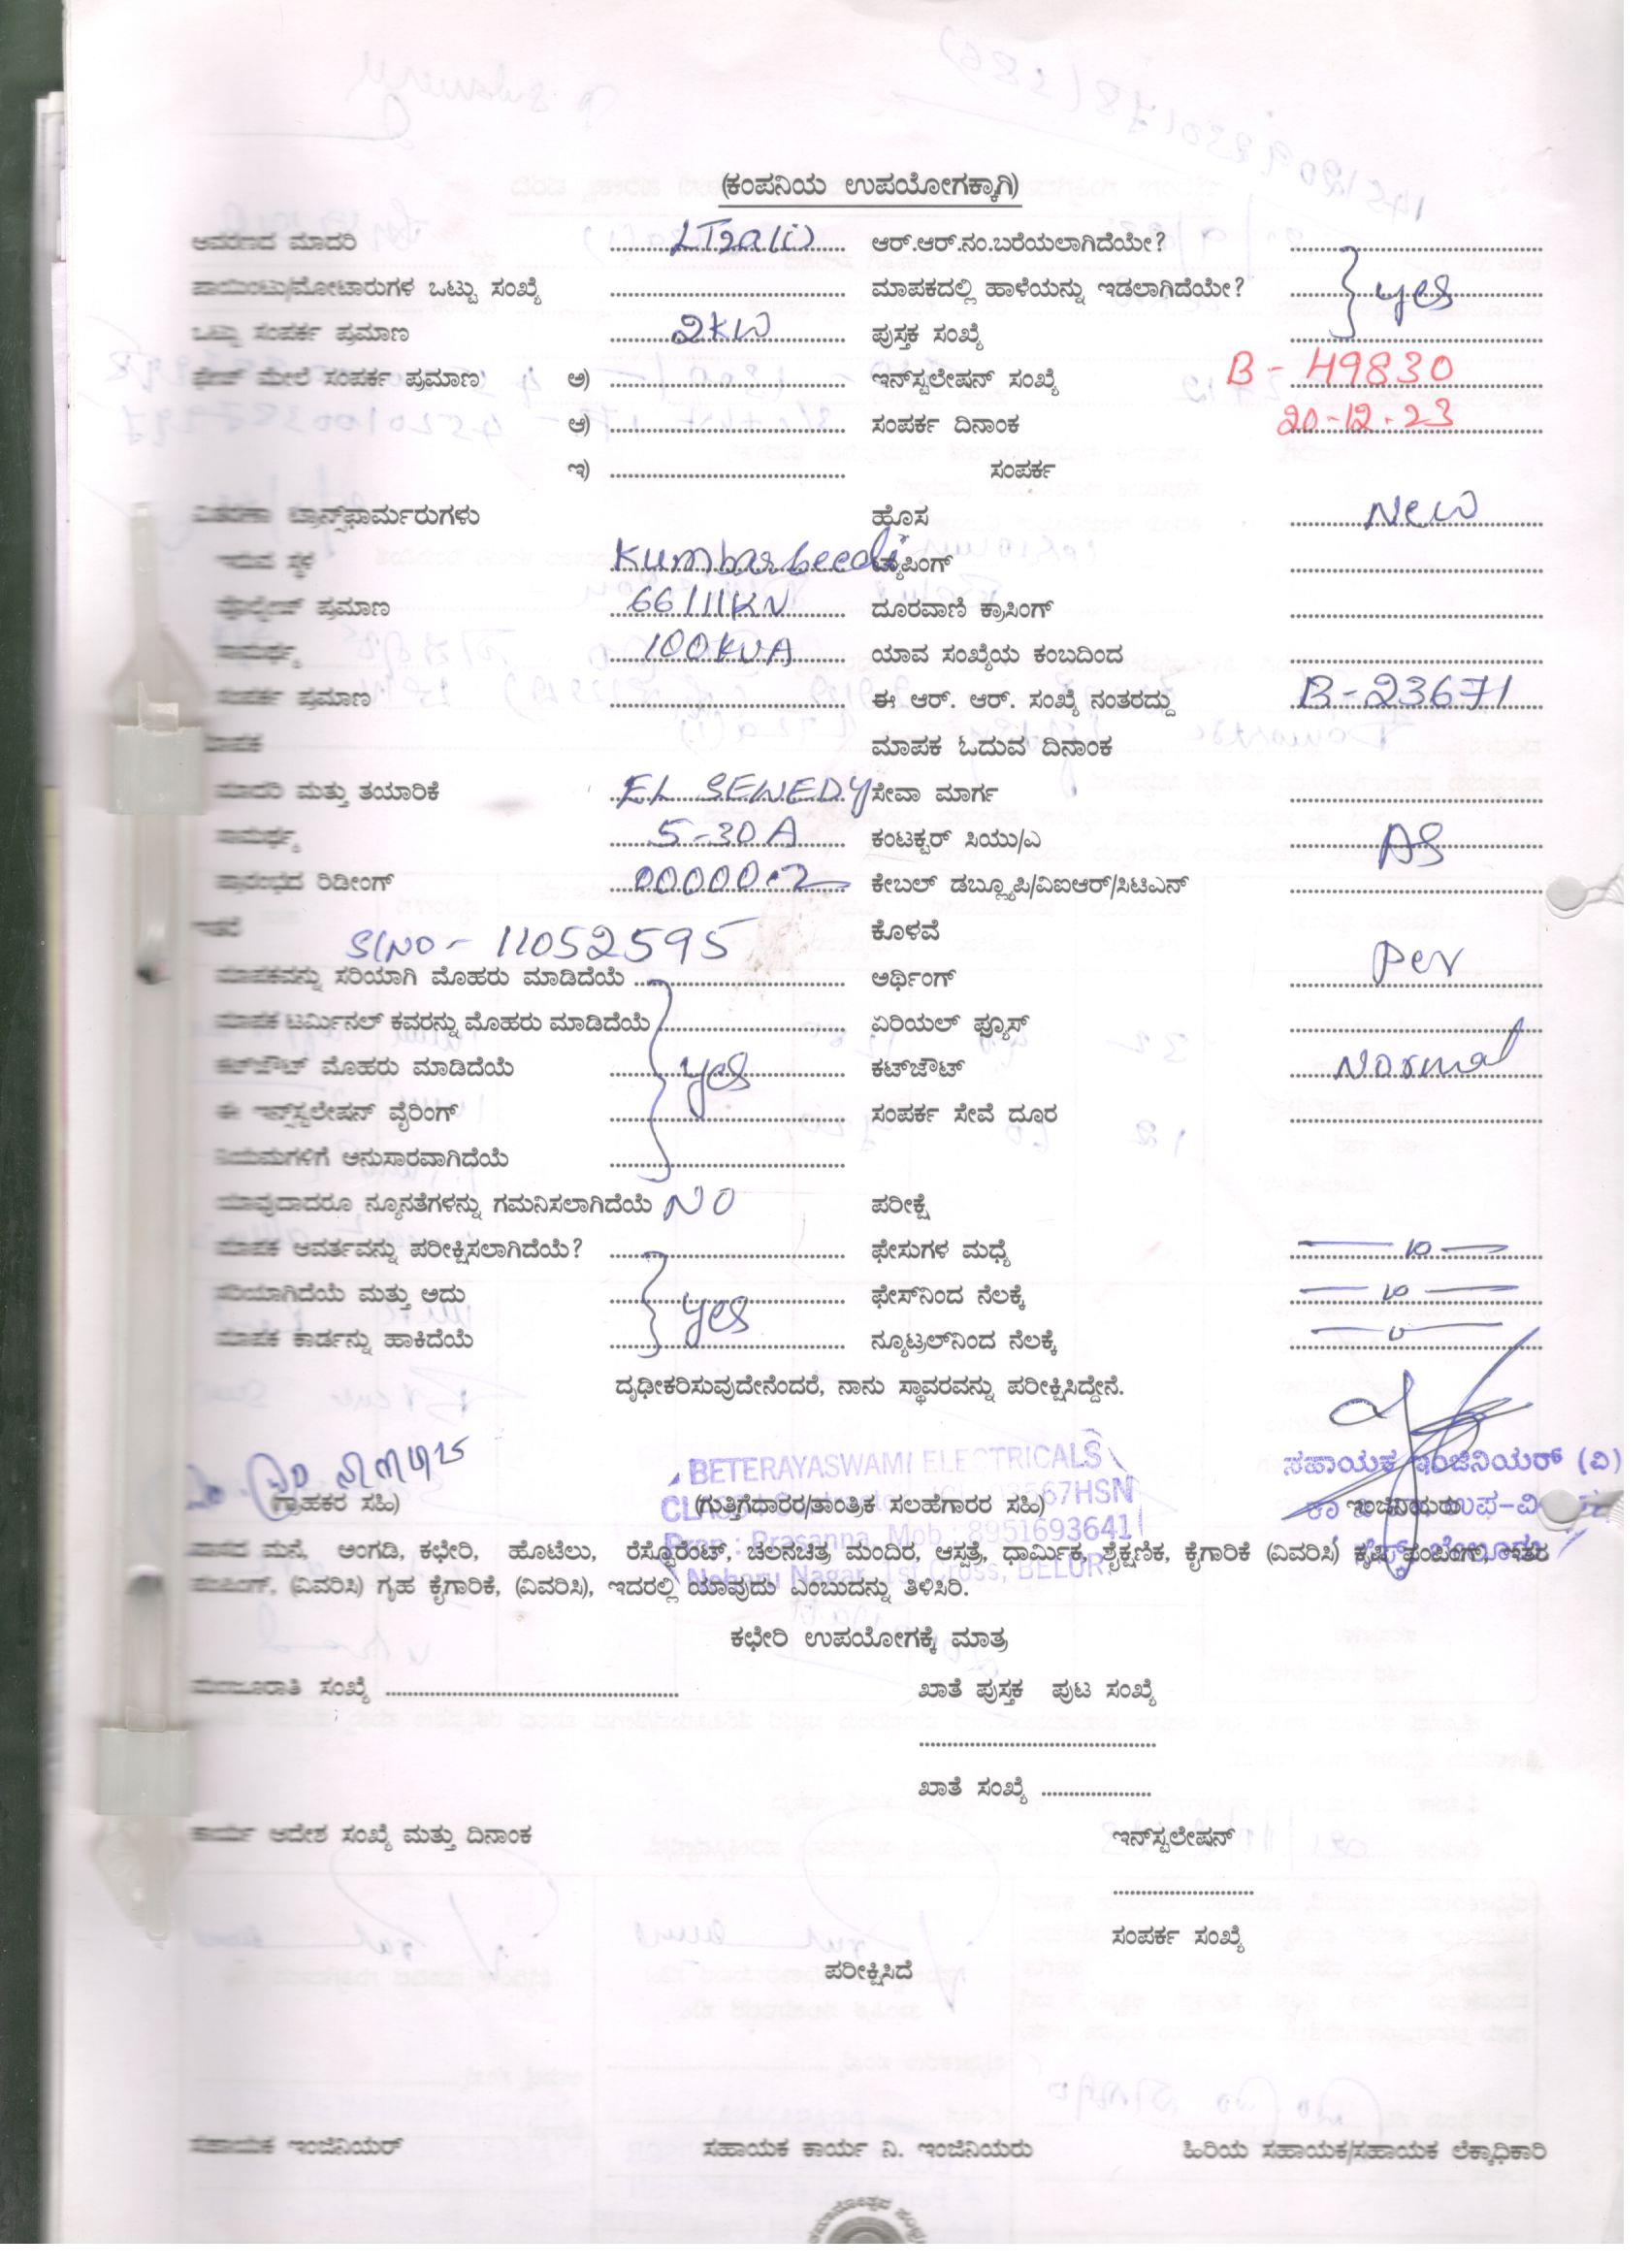 (ಕಂಪನಿಯ ಉಪಯೋಗಕ್ಕಾಗಿ)
ಆವರಣದ ಮಾದರಿ LT2a(i) ಆರ್.ಆರ್.ನಂ.ಬರೆಯಲಾಗಿದೆಯೇ?
ಪಾಯಿಂಟು/ಮೋಟಾರುಗಳ ಒಟ್ಟು ಸಂಖ್ಯೆ ಮಾಪಕದಲ್ಲಿ ಹಾಳೆಯನ್ನು ಇಡಲಾಗಿದೆಯೇ? yes
ಒಟ್ಟು ಸಂಪರ್ಕ ಪ್ರಮಾಣ 2KW ಪುಸ್ತಕ ಸಂಖ್ಯೆ
ಫೇಜ್ ಮೇಲೆ ಸಂಪರ್ಕ ಪ್ರಮಾಣ ಅ) ಇನ್‌ಸ್ಟಲೇಷನ್ ಸಂಖ್ಯೆ B-49830
ಆ) ಸಂಪರ್ಕ ದಿನಾಂಕ 20-12-23
ಇ) ಸಂಪರ್ಕ
ವಿತರಣಾ ಟ್ರಾನ್ಸ್‌ಫಾರ್ಮರುಗಳು ಹೊಸ New
ಇರುವ ಸ್ಥಳ Kumbarbeedi ಟ್ಯಾಪಿಂಗ್
ವೋಲ್ಟೇಜ್ ಪ್ರಮಾಣ 66/11KV ದೂರವಾಣಿ ಕ್ರಾಸಿಂಗ್
ಸಾಮರ್ಥ್ಯ 100KVA ಯಾವ ಸಂಖ್ಯೆಯ ಕಂಬದಿಂದ
ಸಂಪರ್ಕ ಪ್ರಮಾಣ ಈ ಆರ್. ಆರ್. ಸಂಖ್ಯೆ ನಂತರದ್ದು B-23671
ಮಾಪಕ ಮಾಪಕ ಓದುವ ದಿನಾಂಕ
ಮಾದರಿ ಮತ್ತು ತಯಾರಿಕೆ EL SEWEDY ಸೇವಾ ಮಾರ್ಗ
ಸಾಮರ್ಥ್ಯ 5-30A ಕಂಟಕ್ಟರ್ ಸಿಯು/ಎ AS
ಪ್ರಾರಂಭದ ರಿಡೀಂಗ್ 000000.2 ಕೇಬಲ್ ಡಬ್ಲ್ಯೂಪಿ/ವಿಐಆರ್/ಸಿಟಿಎನ್
ಇತರೆ Sl NO - 11052595 ಕೊಳವೆ
ಮಾಪಕವನ್ನು ಸರಿಯಾಗಿ ಮೊಹರು ಮಾಡಿದೆಯೆ ಅರ್ಥಿಂಗ್ Per
ಮಾಪಕ ಟರ್ಮಿನಲ್ ಕವರನ್ನು ಮೊಹರು ಮಾಡಿದೆಯೆ ಏರಿಯಲ್ ಫ್ಯೂಸ್
ಕಟ್‌ಔಟ್ ಮೊಹರು ಮಾಡಿದೆಯೆ yes ಕಟ್‌ಔಟ್ Normal
ಈ ಇನ್‌ಸ್ಟಲೇಷನ್ ವೈರಿಂಗ್ ಸಂಪರ್ಕ ಸೇವೆ ದೂರ
ನಿಯಮಗಳಿಗೆ ಅನುಸಾರವಾಗಿದೆಯೆ
ಯಾವುದಾದರೂ ನ್ಯೂನತೆಗಳನ್ನು ಗಮನಿಸಲಾಗಿದೆಯೆ NO ಪರೀಕ್ಷೆ
ಮಾಪಕ ಆವರ್ತವನ್ನು ಪರೀಕ್ಷಿಸಲಾಗಿದೆಯೆ? ಫೇಸುಗಳ ಮಧ್ಯೆ — 10 —
ಸರಿಯಾಗಿದೆಯೆ ಮತ್ತು ಅದು yes ಫೇಸ್‌ನಿಂದ ನೆಲಕ್ಕೆ — 10 —
ಮಾಪಕ ಕಾರ್ಡನ್ನು ಹಾಕಿದೆಯೆ ನ್ಯೂಟ್ರಲ್‌ನಿಂದ ನೆಲಕ್ಕೆ
ದೃಢೀಕರಿಸುವುದೇನೆಂದರೆ, ನಾನು ಸ್ಥಾವರವನ್ನು ಪರೀಕ್ಷಿಸಿದ್ದೇನೆ.
BETERAYASWAMI ELECTRICALS ಸಹಾಯಕ ಇಂಜಿನಿಯರ್ (ವಿ)
(ಗ್ರಾಹಕರ ಸಹಿ) (ಗುತ್ತಿಗೆದಾರರ/ತಾಂತ್ರಿಕ ಸಲಹೆಗಾರರ ಸಹಿ) ಇಂಜಿನಿಯರು
Prop : Prasanna, Mob : 8951693641
Neharu Nagar, 1st Cross, BELUR
ವಾಸದ ಮನೆ, ಅಂಗಡಿ, ಕಛೇರಿ, ಹೊಟೆಲು, ರೆಸ್ಟೊರೆಂಟ್, ಚಲನಚಿತ್ರ ಮಂದಿರ, ಆಸ್ಪತ್ರೆ, ಧಾರ್ಮಿಕ, ಶೈಕ್ಷಣಿಕ, ಕೈಗಾರಿಕೆ (ವಿವರಿಸಿ) ಕೃಷಿ ಪಂಪಿಂಗ್, ಇತರ
ಪಂಪಿಂಗ್, (ವಿವರಿಸಿ) ಗೃಹ ಕೈಗಾರಿಕೆ, (ವಿವರಿಸಿ), ಇದರಲ್ಲಿ ಯಾವುದು ಎಂಬುದನ್ನು ತಿಳಿಸಿರಿ.
ಕಛೇರಿ ಉಪಯೋಗಕ್ಕೆ ಮಾತ್ರ
ಮಂಜೂರಾತಿ ಸಂಖ್ಯೆ ಖಾತೆ ಪುಸ್ತಕ ಪುಟ ಸಂಖ್ಯೆ
ಖಾತೆ ಸಂಖ್ಯೆ
ಕಾರ್ಯ ಆದೇಶ ಸಂಖ್ಯೆ ಮತ್ತು ದಿನಾಂಕ ಇನ್‌ಸ್ಟಲೇಷನ್
ಸಂಪರ್ಕ ಸಂಖ್ಯೆ
ಪರೀಕ್ಷಿಸಿದೆ
ಸಹಾಯಕ ಇಂಜಿನಿಯರ್ ಸಹಾಯಕ ಕಾರ್ಯ ನಿ. ಇಂಜಿನಿಯರು ಹಿರಿಯ ಸಹಾಯಕ/ಸಹಾಯಕ ಲೆಕ್ಕಾಧಿಕಾರಿ